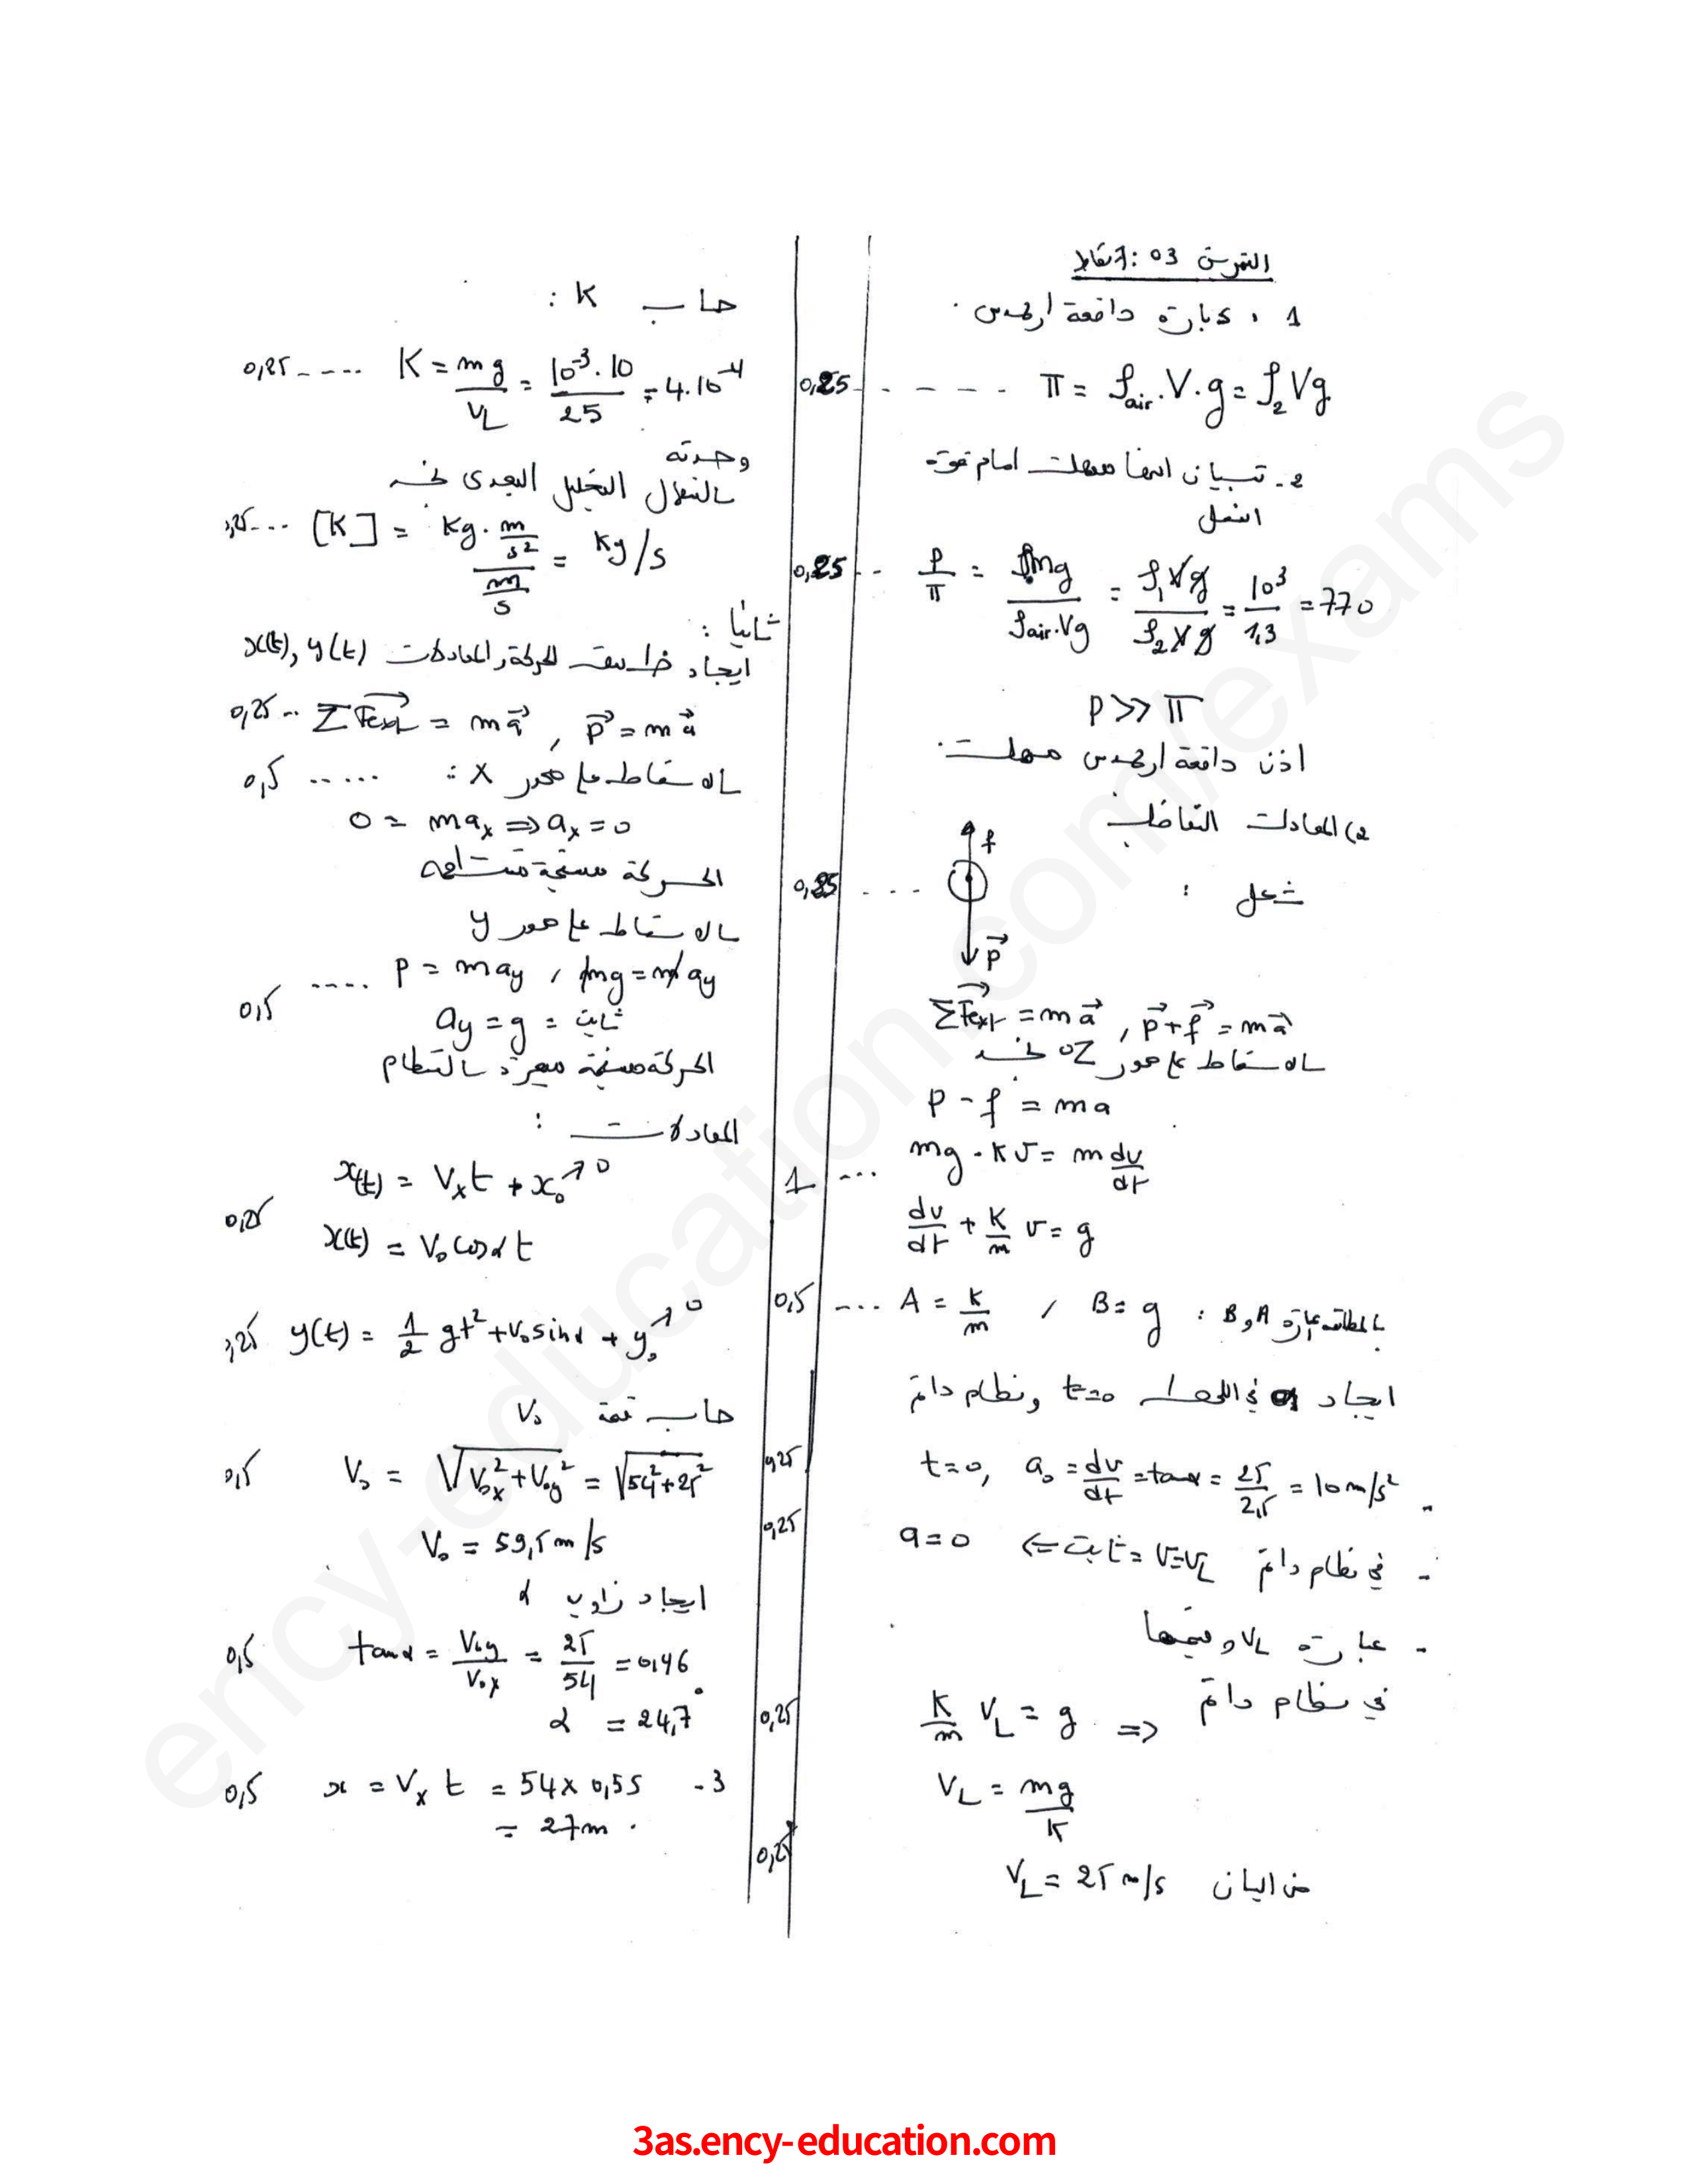 التمرين 03 : 7 نقاط
1 . عبارة دافعة ارخميدس .
0,25 - - - - - π = ρair . V . g = ρ2 Vg
2 - تبيان انها مهملة امام قوة
الثقل
0,25 - - P/π = ρmg / ρair.Vg = ρ1Vg / ρ2Vg = 10³ / 1,3 = 770
P >> π
اذن دافعة ارخميدس مهملة .
2) المعادلة التفاضلية
شكل :
0,25 - - - -
f
P⃗
ΣFext = m a⃗ , P⃗ + f⃗ = m a⃗
بالاسقاط على محور OZ نجد
P - f = ma
1 ... mg - Kv = m dv/dt
dv/dt + K/m v = g
0,5 .... A = K/m / B = g : بالمطابقة عبارة A و B
ايجاد a في اللحظة t=0 ونظام دائم
0,25 t=0, a₀ = dv/dt = tanα = 25/2,5 = 10 m/s²
0,25 - في نظام دائم V=VL = ثابت ⇐ a=0
- عبارة VL وقيمتها
في نظام دائم
0,25 K/m VL = g =>
VL = mg/K
0,25 من البيان VL = 25 m/s
حساب K :
0,25 - - - - K = mg/VL = 10⁻³.10 / 25 = 4.10⁻⁴
وحدته
بالتعمال التحليل البعدي نجد
,25 - - ... [K] = Kg . m/s² / m/s = Kg/s
ثانيا :
ايجاد طبيعة الحركة والمعادلات x(t), y(t)
0,25 .. ΣFext = m a⃗ , P⃗ = m a⃗
0,5 ..... بالاسقاط على محور X :
0 = m ax => ax = 0
الحركة مستقيمة منتظمة
بالاسقاط على محور y
0,5 .... P = may , mg = m ay
ay = g = ثابت
الحركة مستقيمة متغيرة بالنتظام
المعادلات :
x(t) = Vx t + x₀ ↗ 0
0,25 x(t) = V₀ cosα t
,25 y(t) = 1/2 gt² + V₀ sinα + y₀ ↗ 0
حساب قيمة V₀
0,5 V₀ = √V₀x² + V₀y² = √54² + 25²
V₀ = 59,5 m/s
ايجاد زاوية α
0,5 tanα = V₀y / V₀x = 25/54 = 0,46
α = 24,7°
0,5 x = Vx t = 54 x 0,55 - 3
= 27m .
ency-education.com/exams
3as.ency-education.com